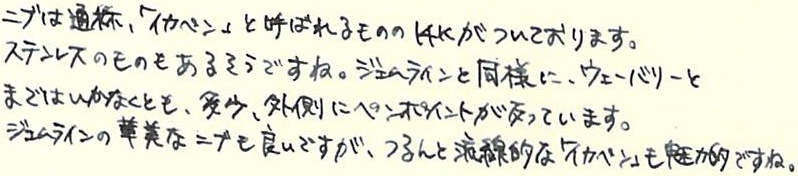 ニブは通称、「イカペン」と呼ばれるものの14Kがついております。
ステンレスのものもあるそうですね。ジェムラインと同様に、ウェーバリーと
まではいかなくとも、多少、外側にペンポイントが反っています。
ジェムラインの華美なニブも良いですが、つるんと流線的な「イカペン」も魅力的ですね。